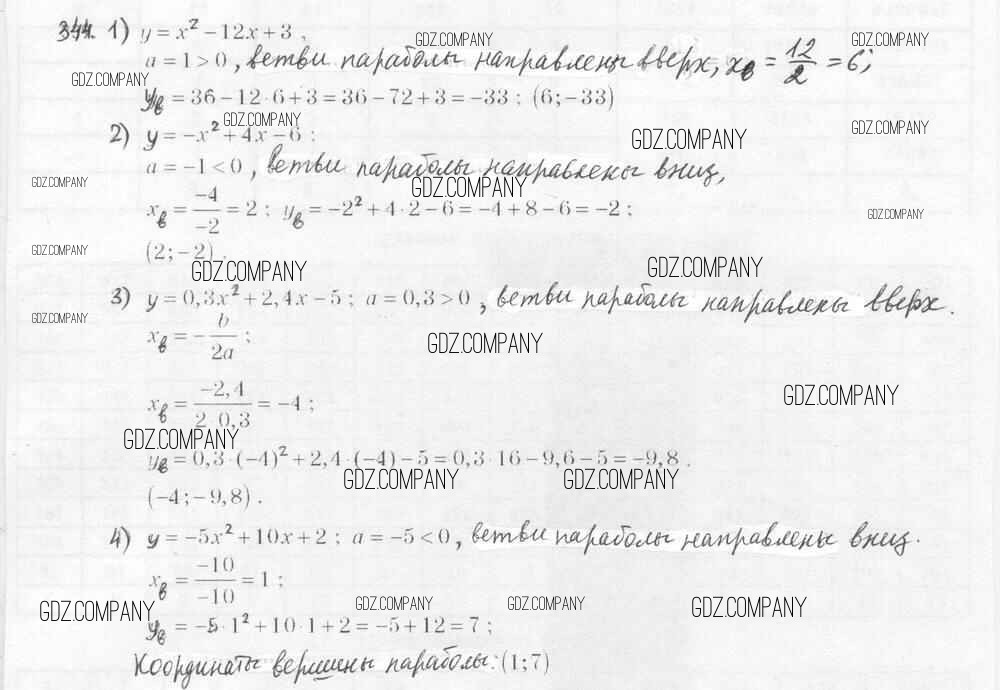 344. 1) y = x² − 12x + 3 ,
GDZ.COMPANY GDZ.COMPANY
a = 1 > 0 , ветви параболы направлены вверх, xв = 12/2 = 6;
GDZ.COMPANY
yв = 36 − 12·6 + 3 = 36 − 72 + 3 = −33 ; (6; −33)
GDZ.COMPANY GDZ.COMPANY
2) y = −x² + 4x − 6 :
GDZ.COMPANY
a = −1 < 0 , ветви параболы направлены вниз,
GDZ.COMPANY GDZ.COMPANY
xв = −4/−2 = 2 ; yв = −2² + 4·2 − 6 = −4 + 8 − 6 = −2 ;
GDZ.COMPANY
(2; −2) .
GDZ.COMPANY
GDZ.COMPANY GDZ.COMPANY
3) y = 0,3x² + 2,4x − 5 ; a = 0,3 > 0 , ветви параболы направлены вверх.
GDZ.COMPANY
xв = − b/2a ;
GDZ.COMPANY
GDZ.COMPANY
xв = −2,4/2 0,3 = −4 ;
GDZ.COMPANY
yв = 0,3·(−4)² + 2,4·(−4) − 5 = 0,3·16 − 9,6 − 5 = −9,8 .
GDZ.COMPANY GDZ.COMPANY
(−4; −9,8) .
4) y = −5x² + 10x + 2 ; a = −5 < 0 , ветви параболы направлены вниз.
xв = −10/−10 = 1 ;
GDZ.COMPANY GDZ.COMPANY GDZ.COMPANY GDZ.COMPANY
yв = −5·1² + 10·1 + 2 = −5 + 12 = 7 ;
Координаты вершины параболы: (1; 7)